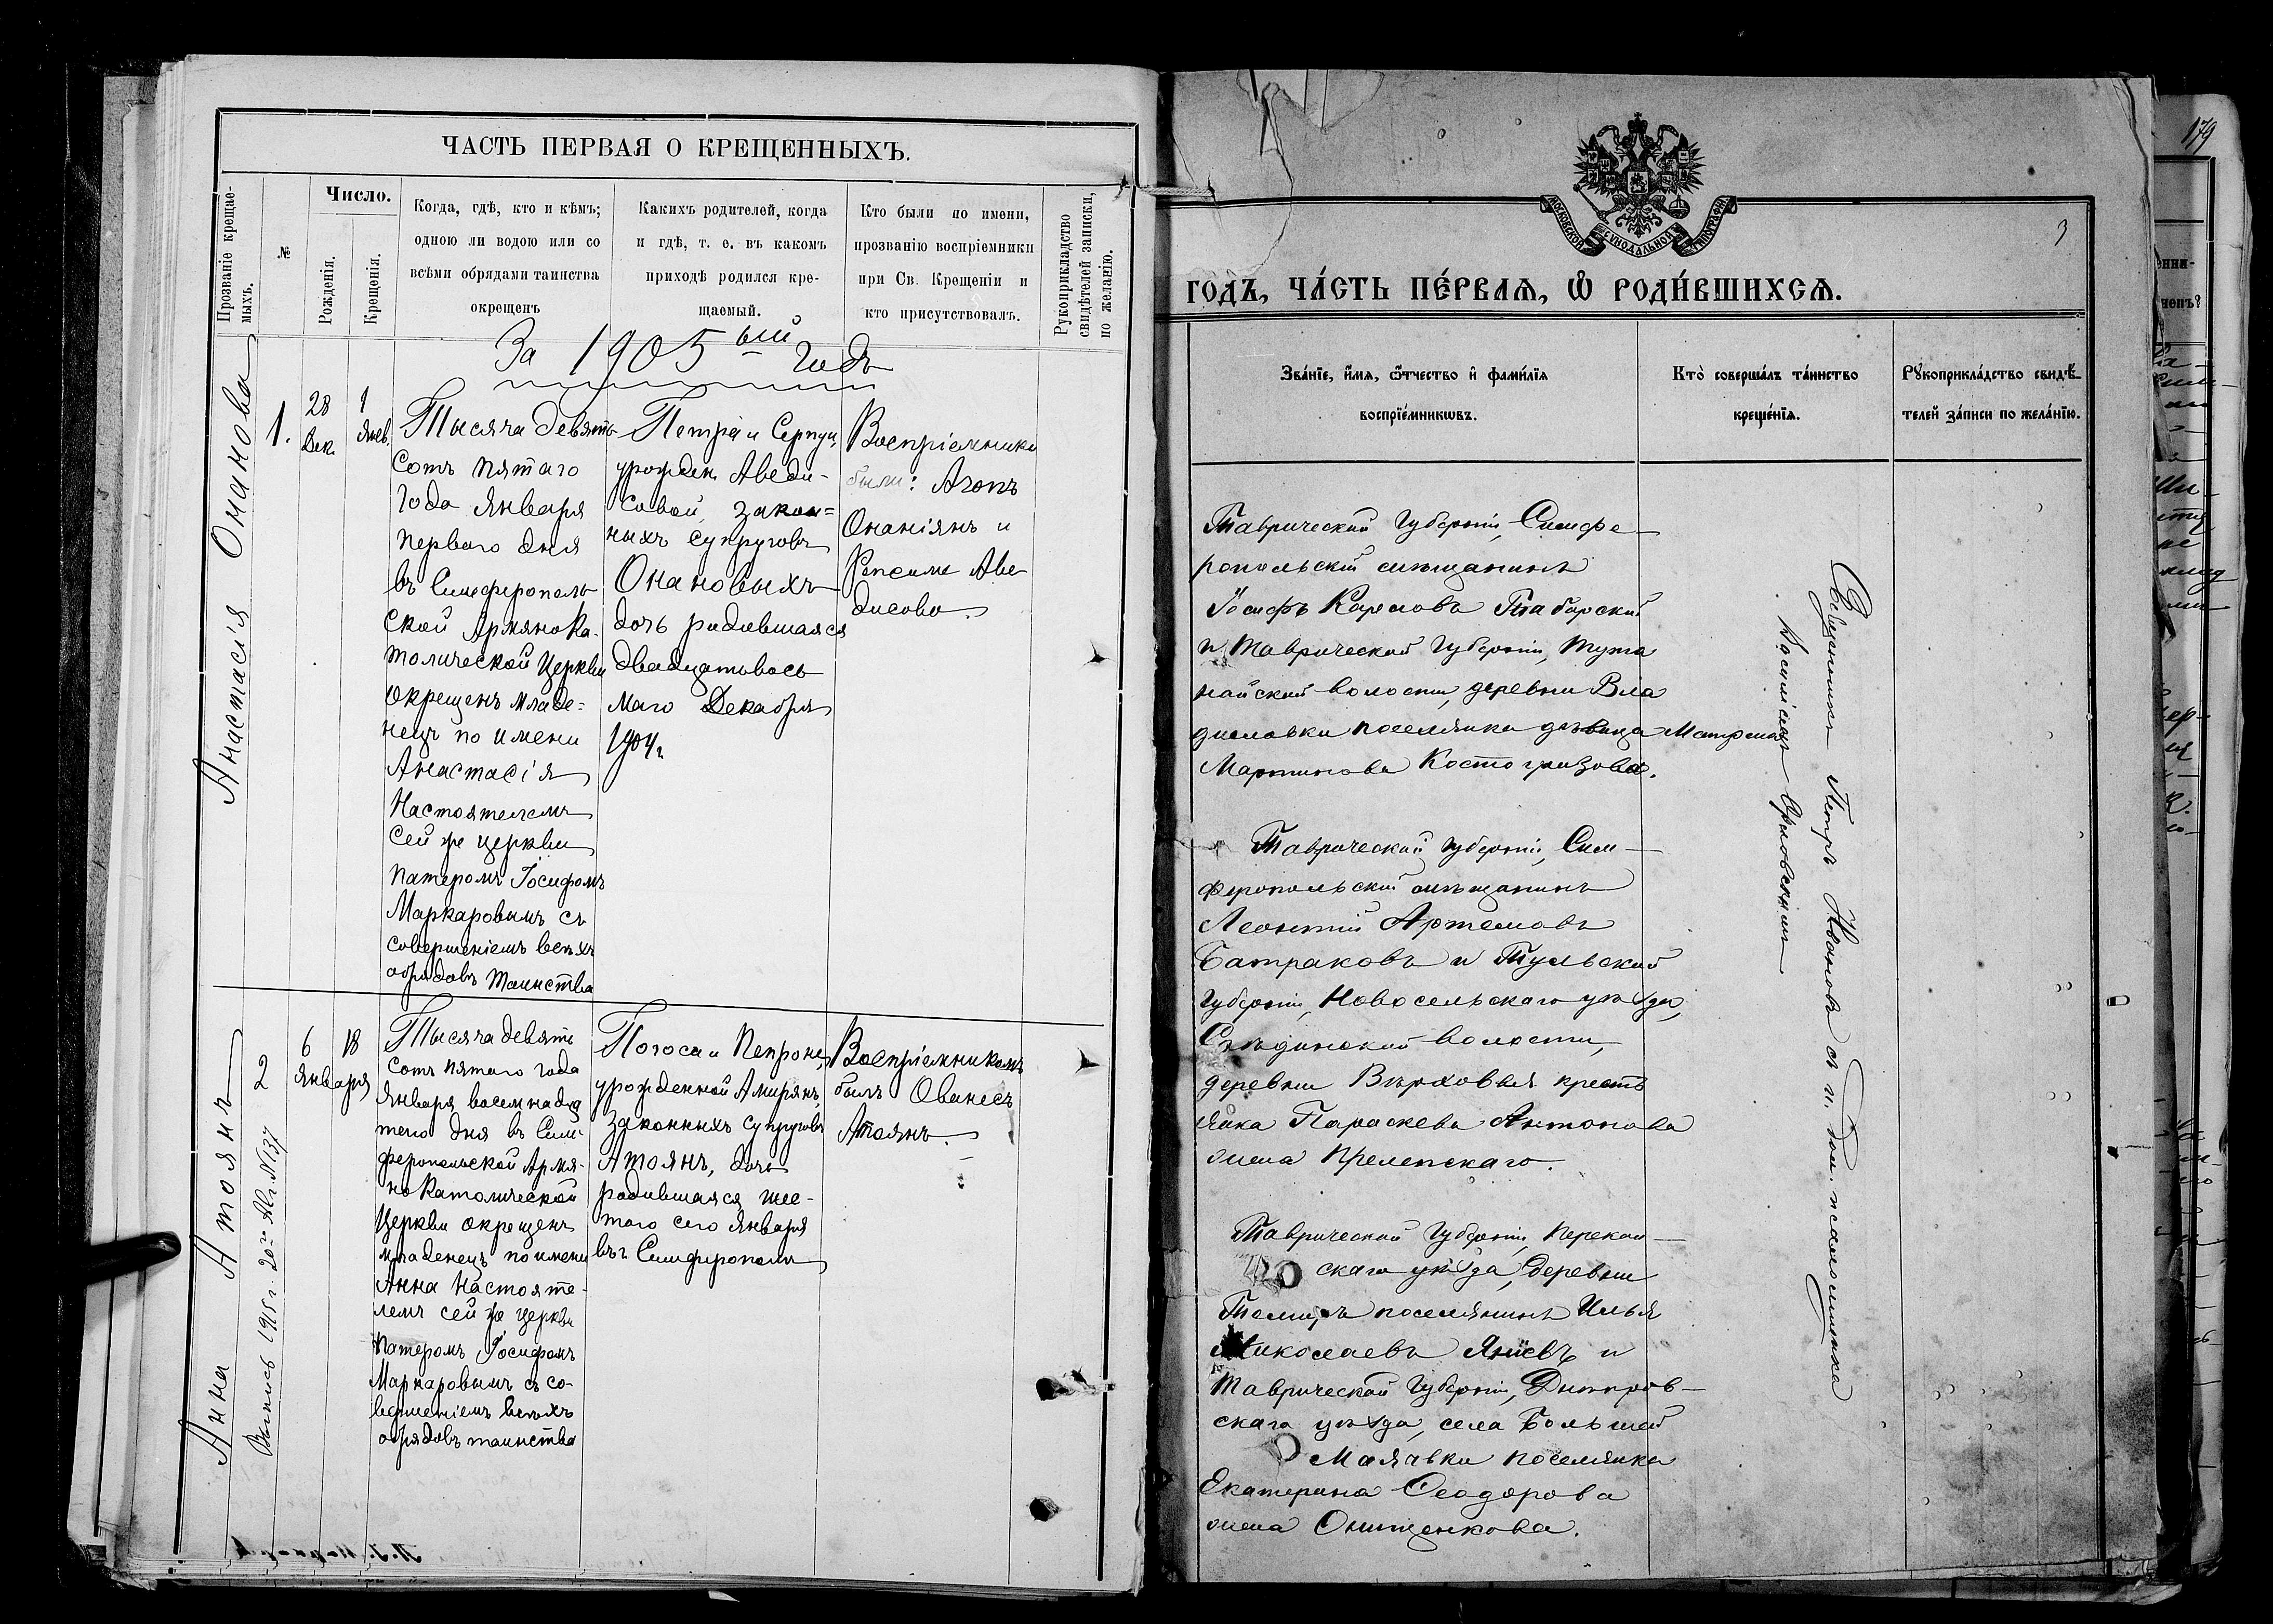 ЧАСТЬ ПЕРВАЯ О КРЕЩЕННЫХЪ.
Прозваніе крещае-
мыхъ.
№
Число.
Рожденія.
Крещенія.
Когда, гдѣ, кто и кѣмъ;
одною ли водою или со
всѣми обрядами таинства
окрещенъ
Какихъ родителей, когда
и гдѣ, т. е. въ какомъ
приходѣ родился кре-
щаемый.
Кто были по имени,
прозванію воспріемники
при Св. Крещеніи и
кто присутствовалъ.
Рукоприкладство
свидѣтелей записки,
по желанію.
За 1905 ый годъ
Анастасія Онанова
1.
28
Дек.
1
Янв.
Тысяча девять
сотъ пятаго
года Января
перваго дня
въ Симферополь
ской Армянока-
толической Церкви
окрещенъ младе=
нецъ по имени
Анастасія
Настоятелемъ
сей же церкви
патеромъ Іосифомъ
Маркаровымъ съ
совершеніемъ всѣхъ
обрядовъ таинства
Петра и Серпуи,
урожден. Аведи-
совой, закон=
ныхъ супруговъ
Онановыхъ
дочь родившаяся
двадцатьвось
маго Декабря
1904 г.
Воспріемники
были: Агопъ
Онаніянъ и
Репсиме Аве
дисова.
Анна Атоянъ
Выпись 1915 г. 20го Авг. №137
2
6
18
Января
Тысяча девять
сотъ пятаго года
Января восемнадца
таго дня въ Сим-
феропольской Армя-
но Католической
Церкви окрещенъ
младенецъ по имени
Анна Настояте-
лемъ сей же церкви
Патеромъ Іосифомъ
Маркаровымъ съ со-
вершеніемъ всѣхъ
обрядовъ таинства
Погоса и Пепроне,
урожденной Амирянъ,
законныхъ супруговъ
Атоянъ, дочь
родившаяся шес-
того сего Января
въ г. Симферополѣ
Воспріемникомъ
былъ Ованесъ
Атоянъ.
МОСКОВСКОЙ СѴНОДАЛЬНОЙ ТИПОГРАФІИ
3
ГОДЪ, ЧА́СТЬ ПЕ́РВАЯ, Ѡ РОДИ́ВШИХСЯ.
Зва́нїе, и҆́мѧ, ѻ҆́тчество и҆ фами́лїѧ
воспрїе́мникѡвъ.
Кто̀ соверша́лъ та́инство
креще́нїѧ.
Рꙋкоприкла́дство свидѣ́-
телей за́писи по жела́нїю.
Таврической Губерніи, Симфе-
ропольскій мѣщанинъ
Іосифъ Карловъ Таборскій
и Таврической Губерніи, Тума
найской волости, деревни Вла
диславки поселянка дѣвица Матрона
Мартинова Костогризова.
Таврической Губерніи, Сим-
феропольскій мѣщанинъ
Леонтій Артемовъ
Батраковъ и Тульской
Губерніи, Новосельскаго уѣзда,
волости,
деревни Верховья кресть
янка Параскева Антонова
жена Прелепскаго.
Таврической Губерніи, Перекоп-
скаго уѣзда, деревни
поселянинъ Илья
Николаевъ Янчевъ и
Таврической Губерніи, Днѣпров-
скаго уѣзда, села Большой
Маячки поселянка
Екатерина Ѳеодорова
жена Онищенкова.
Священникъ Петръ Ивановъ съ и. дол. псаломщика
179